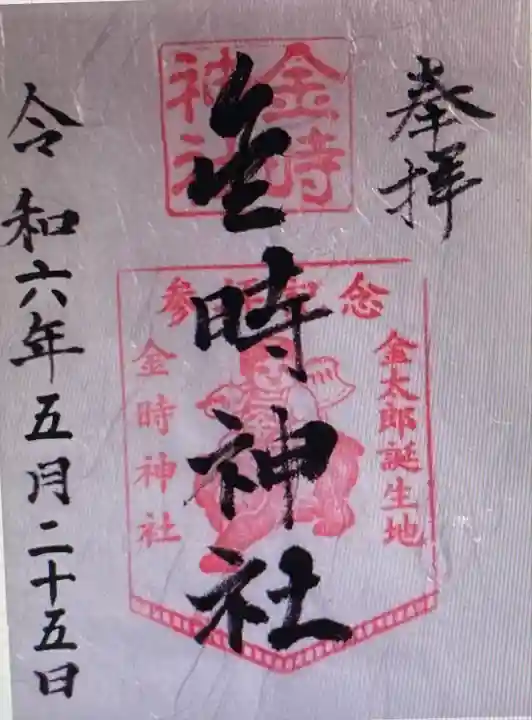 奉拝
金時神社
金時
神社
参拝記念
金太郎誕生地
金時神社
令和六年五月二十五日